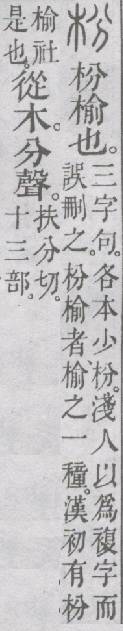 枌 枌榆也。三字句。各本少枌。淺人以爲複字而
誤刪之。枌榆者、榆之一種。漢初有枌
榆社
是也。從木。分聲。扶分切。
十三部。